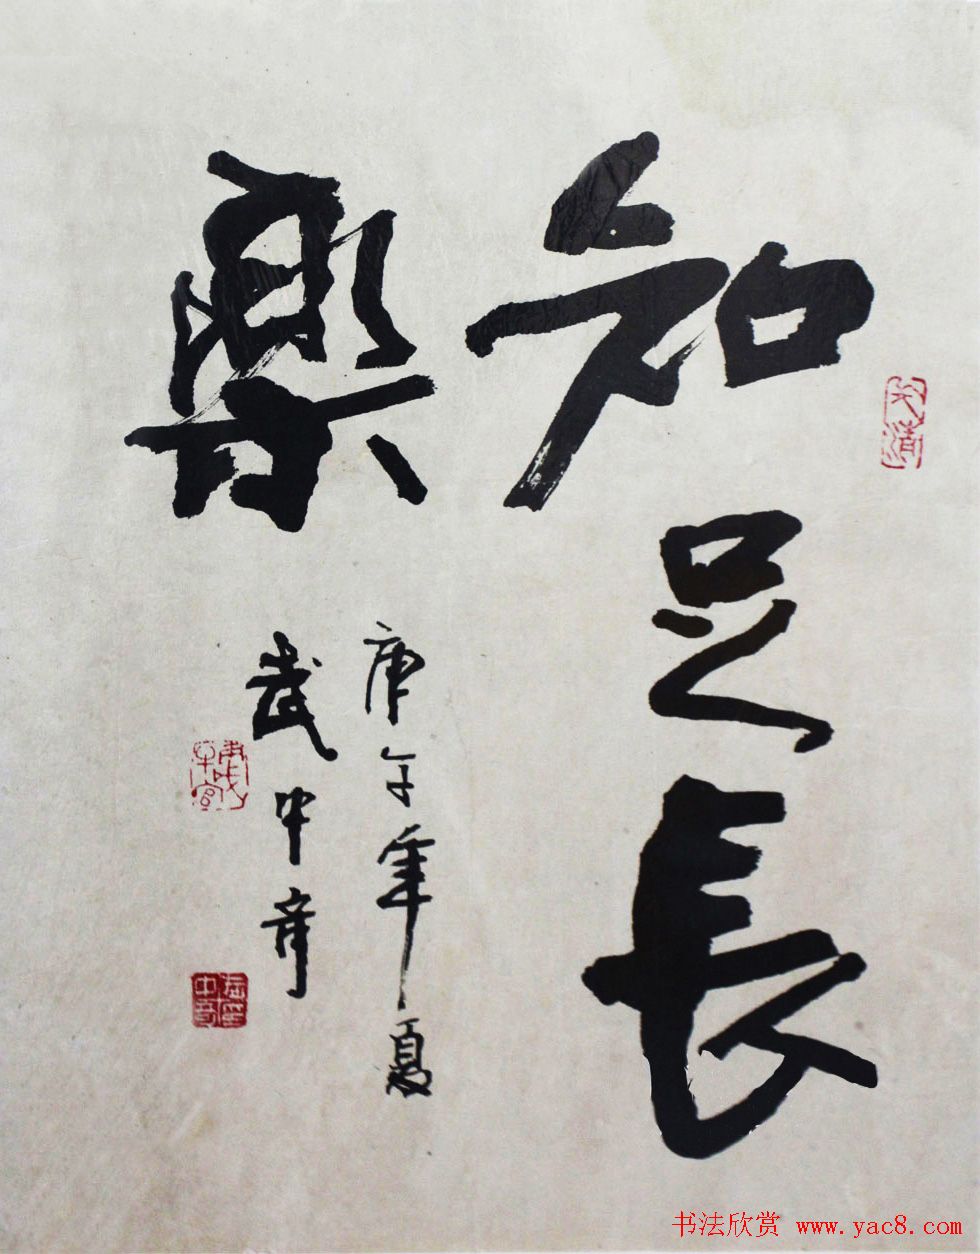 知足長
樂
庚午年夏
武中奇
书法欣赏 www.yac8.com